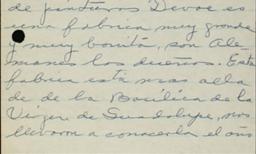 de pinturas Devoe es
una fabrica muy grande
y muy bonita, son Ale-
manes los dueños. Esta
fabrica está mas alla
de de la Basilica de la
Virgen de Guadalupe, nos
llevaron a conocerla el año